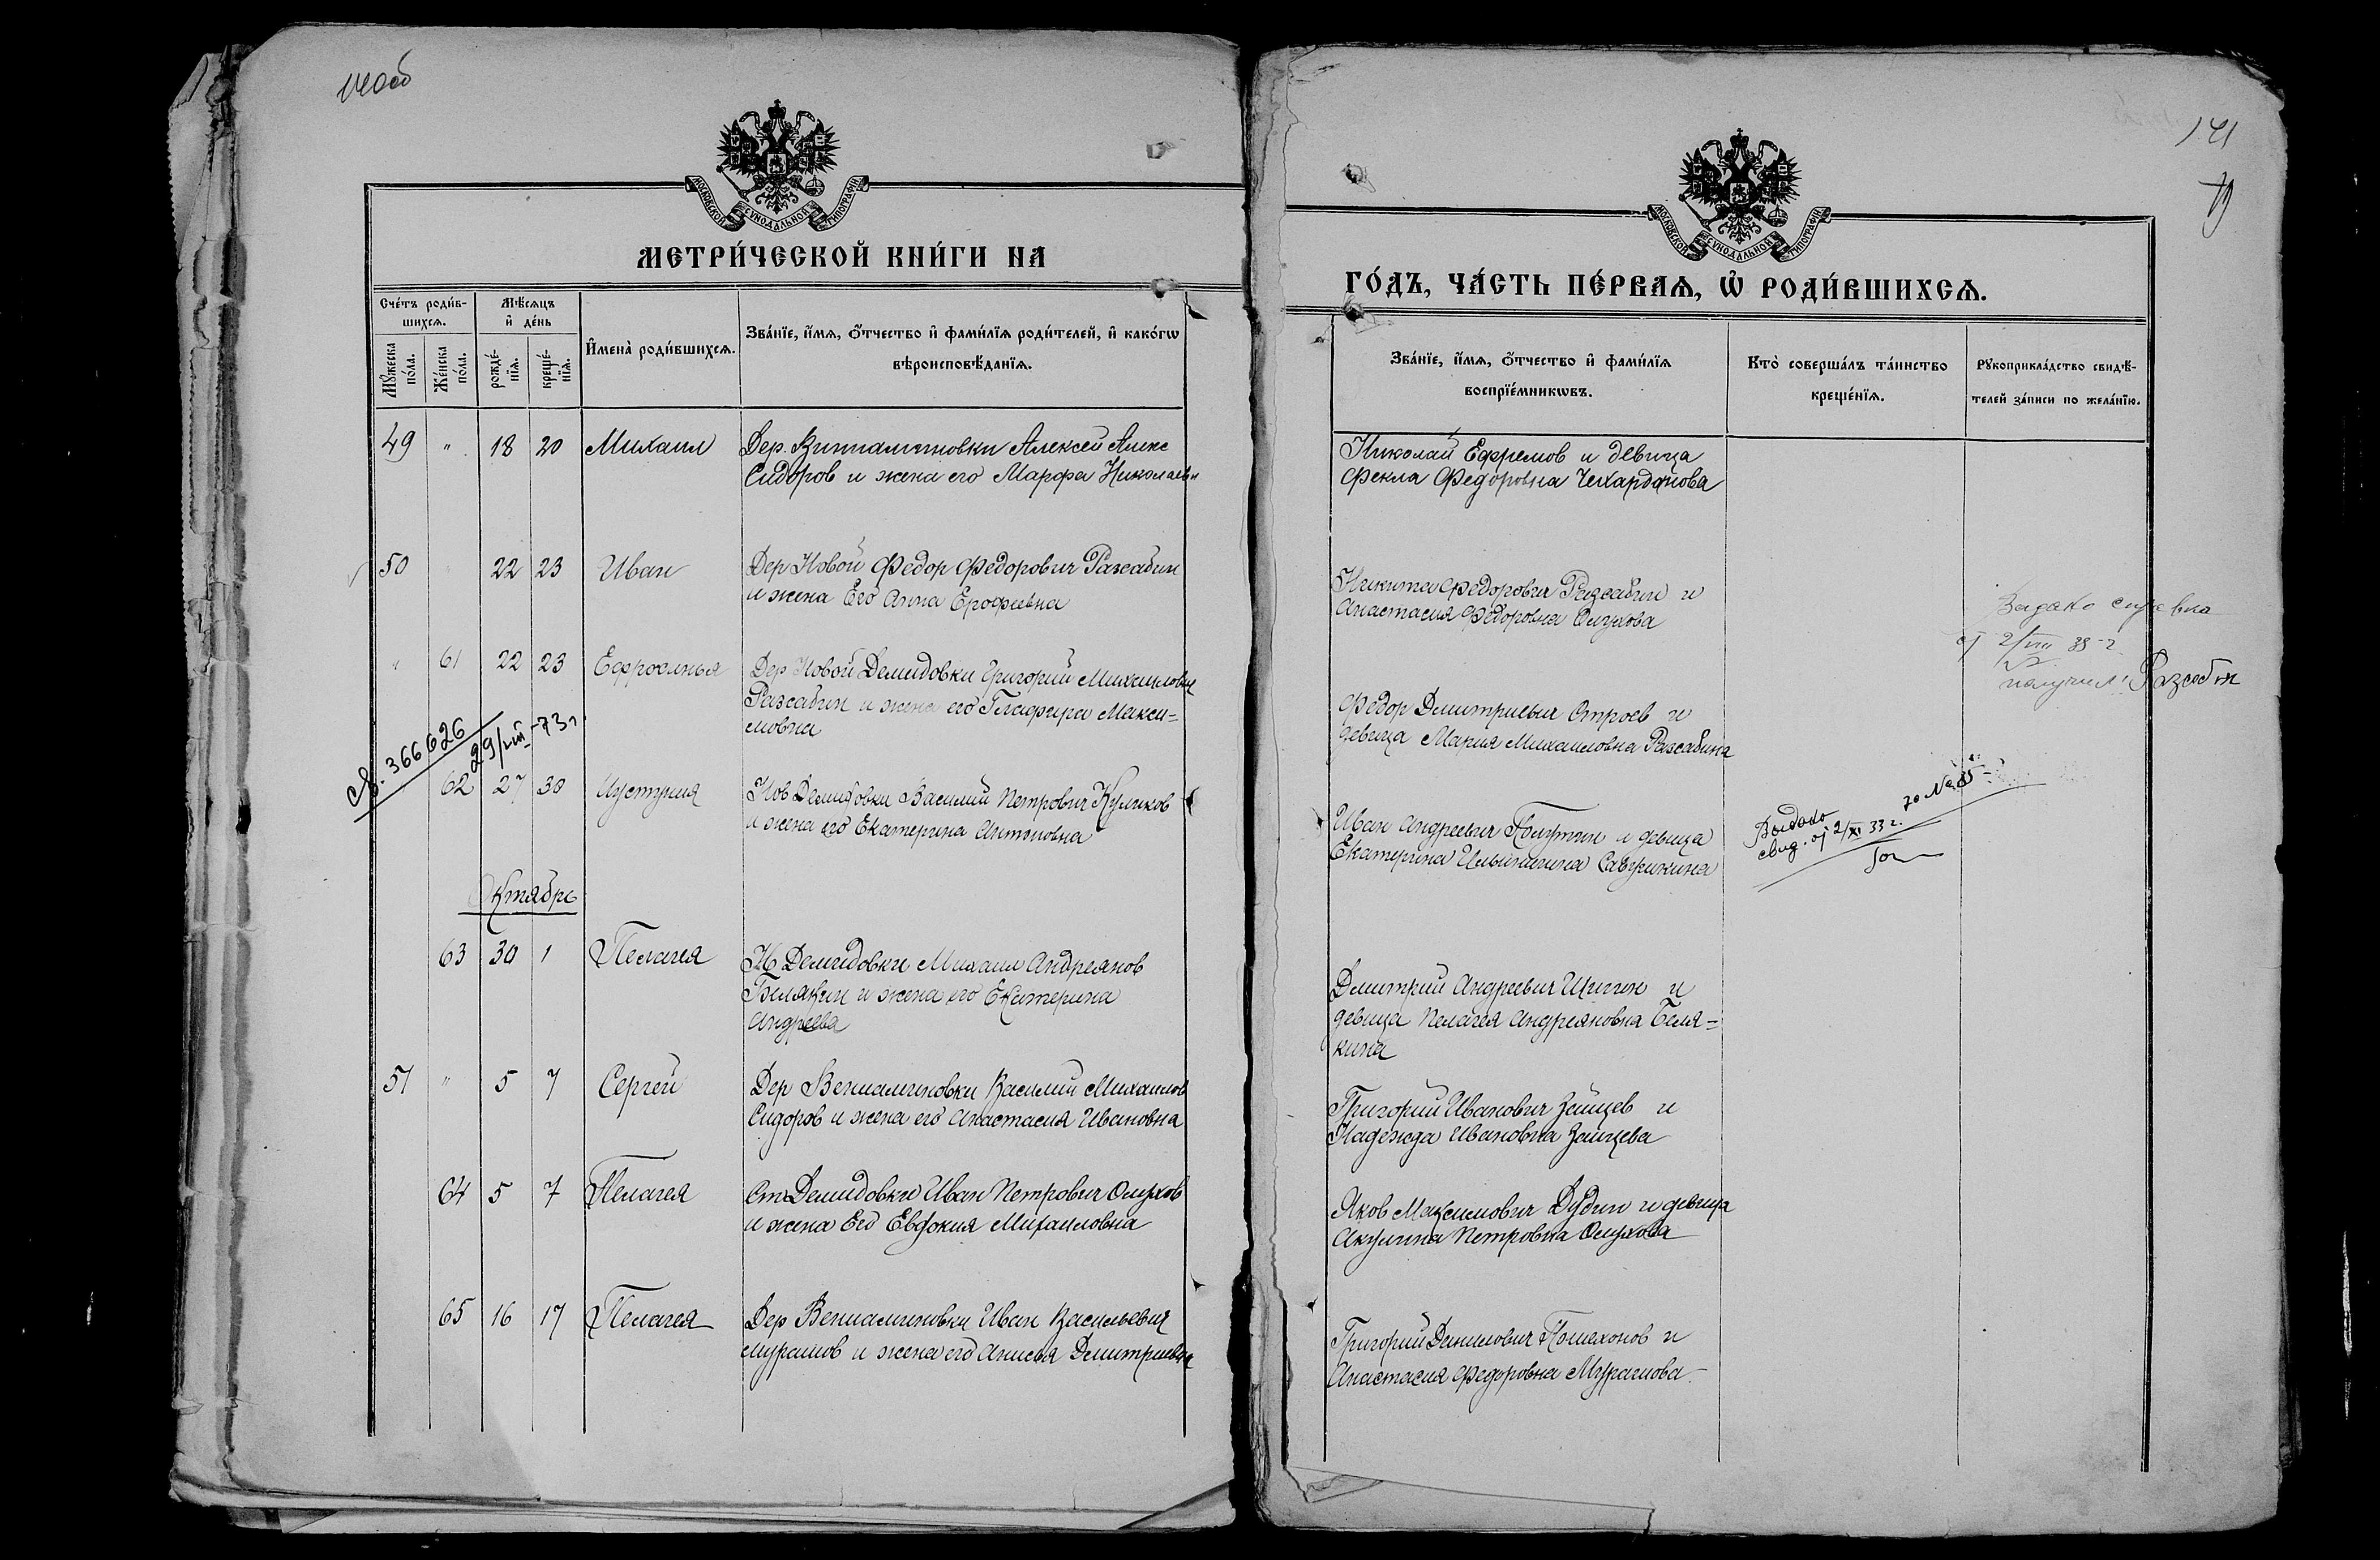 140об
МОСКОВСКОЙ СУНОДАЛЬНОЙ ТИПОГРАФІИ
МЕТРИ́ЧЕСКОЙ КНИ́ГИ НА
Сче́тъ роди́в-
шихсѧ.
Мѣ́сѧцъ
и҆ де́нь
И҆мена̀ роди́вшихсѧ.
Зва́нїе, и҆́мѧ, ѻ҆́тчество и҆ фами́лїѧ роди́телей, и҆ како́гѡ
вѣроисповѣ́данїѧ.
Мꙋ́жеска
по́ла.
Же́нска
по́ла.
рожде́-
нїѧ.
креще́-
нїѧ.
49 " 18 20 Михаил Дер. Алексей Алекс
Сидоров и жена его Марфа Николаевн
50 " 22 23 Иван Дер Новой Федор Федорович Разсабин
и жена Его Анна Ерофеевна
" 61 22 23 Ефросинья Дер Новой Демидовки Григорий Михаилович
Разсабин и жена его Глафира Макси=
мовна
св. 366626
29/VIII-73г
62 27 30 Иустиния Нов Демидовки Василий Петрович Куликов
и жена его Екатерина Антоновна
Октябрь
63 30 1 Пелагея Н Демидовки Михаил Андреянов
Белякин и жена его Екатерина
Андреева
51 " 5 7 Сергей Дер Вениаминовки Василий Михаилов
Сидоров и жена его Анастасия Ивановна
64 5 7 Пелагея Ст Демидовки Иван Петрович Олухов
и жена Его Евдокия Михаиловна
65 16 17 Пелагея Дер Вениаминовки Иван Васильевич
Мурашов и жена его Анисья Дмитриевна
141
МОСКОВСКОЙ СУНОДАЛЬНОЙ ТИПОГРАФІИ
ГО́ДЪ, ЧА́СТЬ ПЕ́РВАѦ, Ѡ҆ РОДИ́ВШИХСѦ.
Зва́нїе, и҆́мѧ, ѻ҆́тчество и҆ фами́лїѧ
воспрїе́мникѡвъ.
Кто̀ соверша́лъ та́инство
креще́нїѧ.
Рꙋкоприкла́дство свидѣ́-
телей за́писи по жела́нїю.
Николай Ефремов и девица
Фекла Федоровна Чехарданова
Никита Федорович Разсабин и
Анастасия Федоровна Олухова
Выдана справка
от 2/VIII 33-г.
получил: Разсабин
Федор Дмитриевич Строев и
девица Мария Михаиловна Разсабина
Иван Андреевич Полутин и девица
Екатерина Савушкина
Выдано
свид. от 2/XI 33 г.
за №
Дмитрий Андреевич и
девица Пелагея Андреяновна Беля=
кина
Григорий Иванович Зайцев и
Надежда Ивановна Зайцева
Яков Максимович Дудин и девица
Акулина Петровна Олухова
Григорий Данилович Помахонов и
Анастасия Федоровна Мурашова